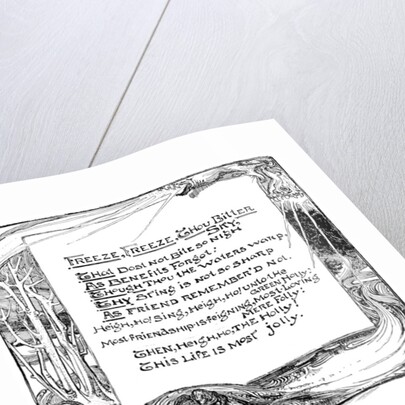 FREEZE, FREEZE, Thou Bitter
SKY,
Thot Dost Not Bite So Nigh
As Benefits Forgot:
Though Thou the Waters Warp,
Thy Sting is not so Sharp
As Friend Remember'd Not.
Heigh, Ho! Sing, Heigh, Ho! Unto the
Green Holly:
Most Friendship is Feigning, Most Loving
Mere Folly:
Then, Heigh, Ho, The Holly!
This Life is Most Jolly.